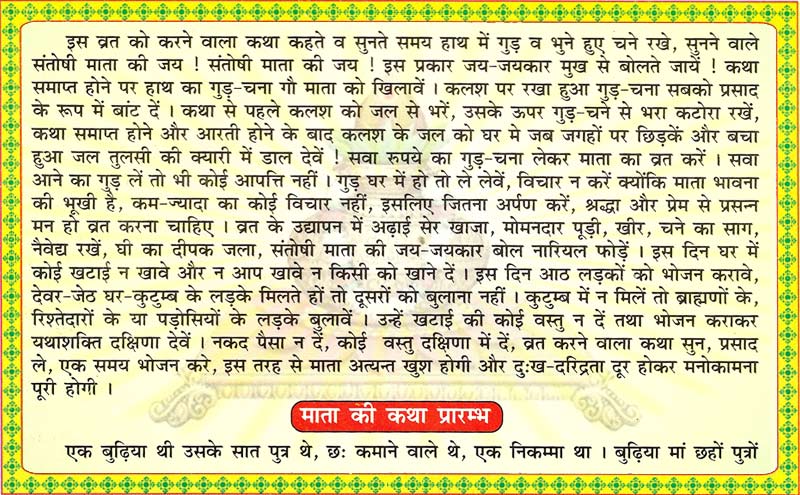 इस व्रत को करने वाला कथा कहते व सुनते समय हाथ में गुड़ व भुने हुए चने रखे, सुनने वाले
संतोषी माता की जय ! संतोषी माता की जय ! इस प्रकार जय-जयकार मुख से बोलते जायें ! कथा
समाप्त होने पर हाथ का गुड़-चना गौ माता को खिलावें । कलश पर रखा हुआ गुड़-चना सबको प्रसाद
के रूप में बांट दें । कथा से पहले कलश को जल से भरें, उसके ऊपर गुड़-चने से भरा कटोरा रखें,
कथा समाप्त होने और आरती होने के बाद कलश के जल को घर मे जब जगहों पर छिड़कें और बचा
हुआ जल तुलसी की क्यारी में डाल देवें ! सवा रुपये का गुड़-चना लेकर माता का व्रत करें । सवा
आने का गुड़ लें तो भी कोई आपत्ति नहीं । गुड़ घर में हो तो ले लेवें, विचार न करें क्योंकि माता भावना
की भूखी है, कम-ज्यादा का कोई विचार नहीं, इसलिए जितना अर्पण करें, श्रद्धा और प्रेम से प्रसन्न
मन हो व्रत करना चाहिए । व्रत के उद्यापन में अढ़ाई सेर खाजा, मोमनदार पूड़ी, खीर, चने का साग,
नैवेद्य रखें, घी का दीपक जला, संतोषी माता की जय-जयकार बोल नारियल फोड़ें । इस दिन घर में
कोई खटाई न खावे और न आप खावे न किसी को खाने दें । इस दिन आठ लड़कों को भोजन करावे,
देवर-जेठ घर-कुटुम्ब के लड़के मिलते हों तो दूसरों को बुलाना नहीं । कुटुम्ब में न मिलें तो ब्राह्मणों के,
रिश्तेदारों के या पड़ोसियों के लड़के बुलावें । उन्हें खटाई की कोई वस्तु न दें तथा भोजन कराकर
यथाशक्ति दक्षिणा देवें । नकद पैसा न दें, कोई वस्तु दक्षिणा में दें, व्रत करने वाला कथा सुन, प्रसाद
ले, एक समय भोजन करे, इस तरह से माता अत्यन्त खुश होगी और दुःख-दरिद्रता दूर होकर मनोकामना
पूरी होगी ।
माता की कथा प्रारम्भ
एक बुढ़िया थी उसके सात पुत्र थे, छः कमाने वाले थे, एक निकम्मा था । बुढ़िया मां छहों पुत्रों